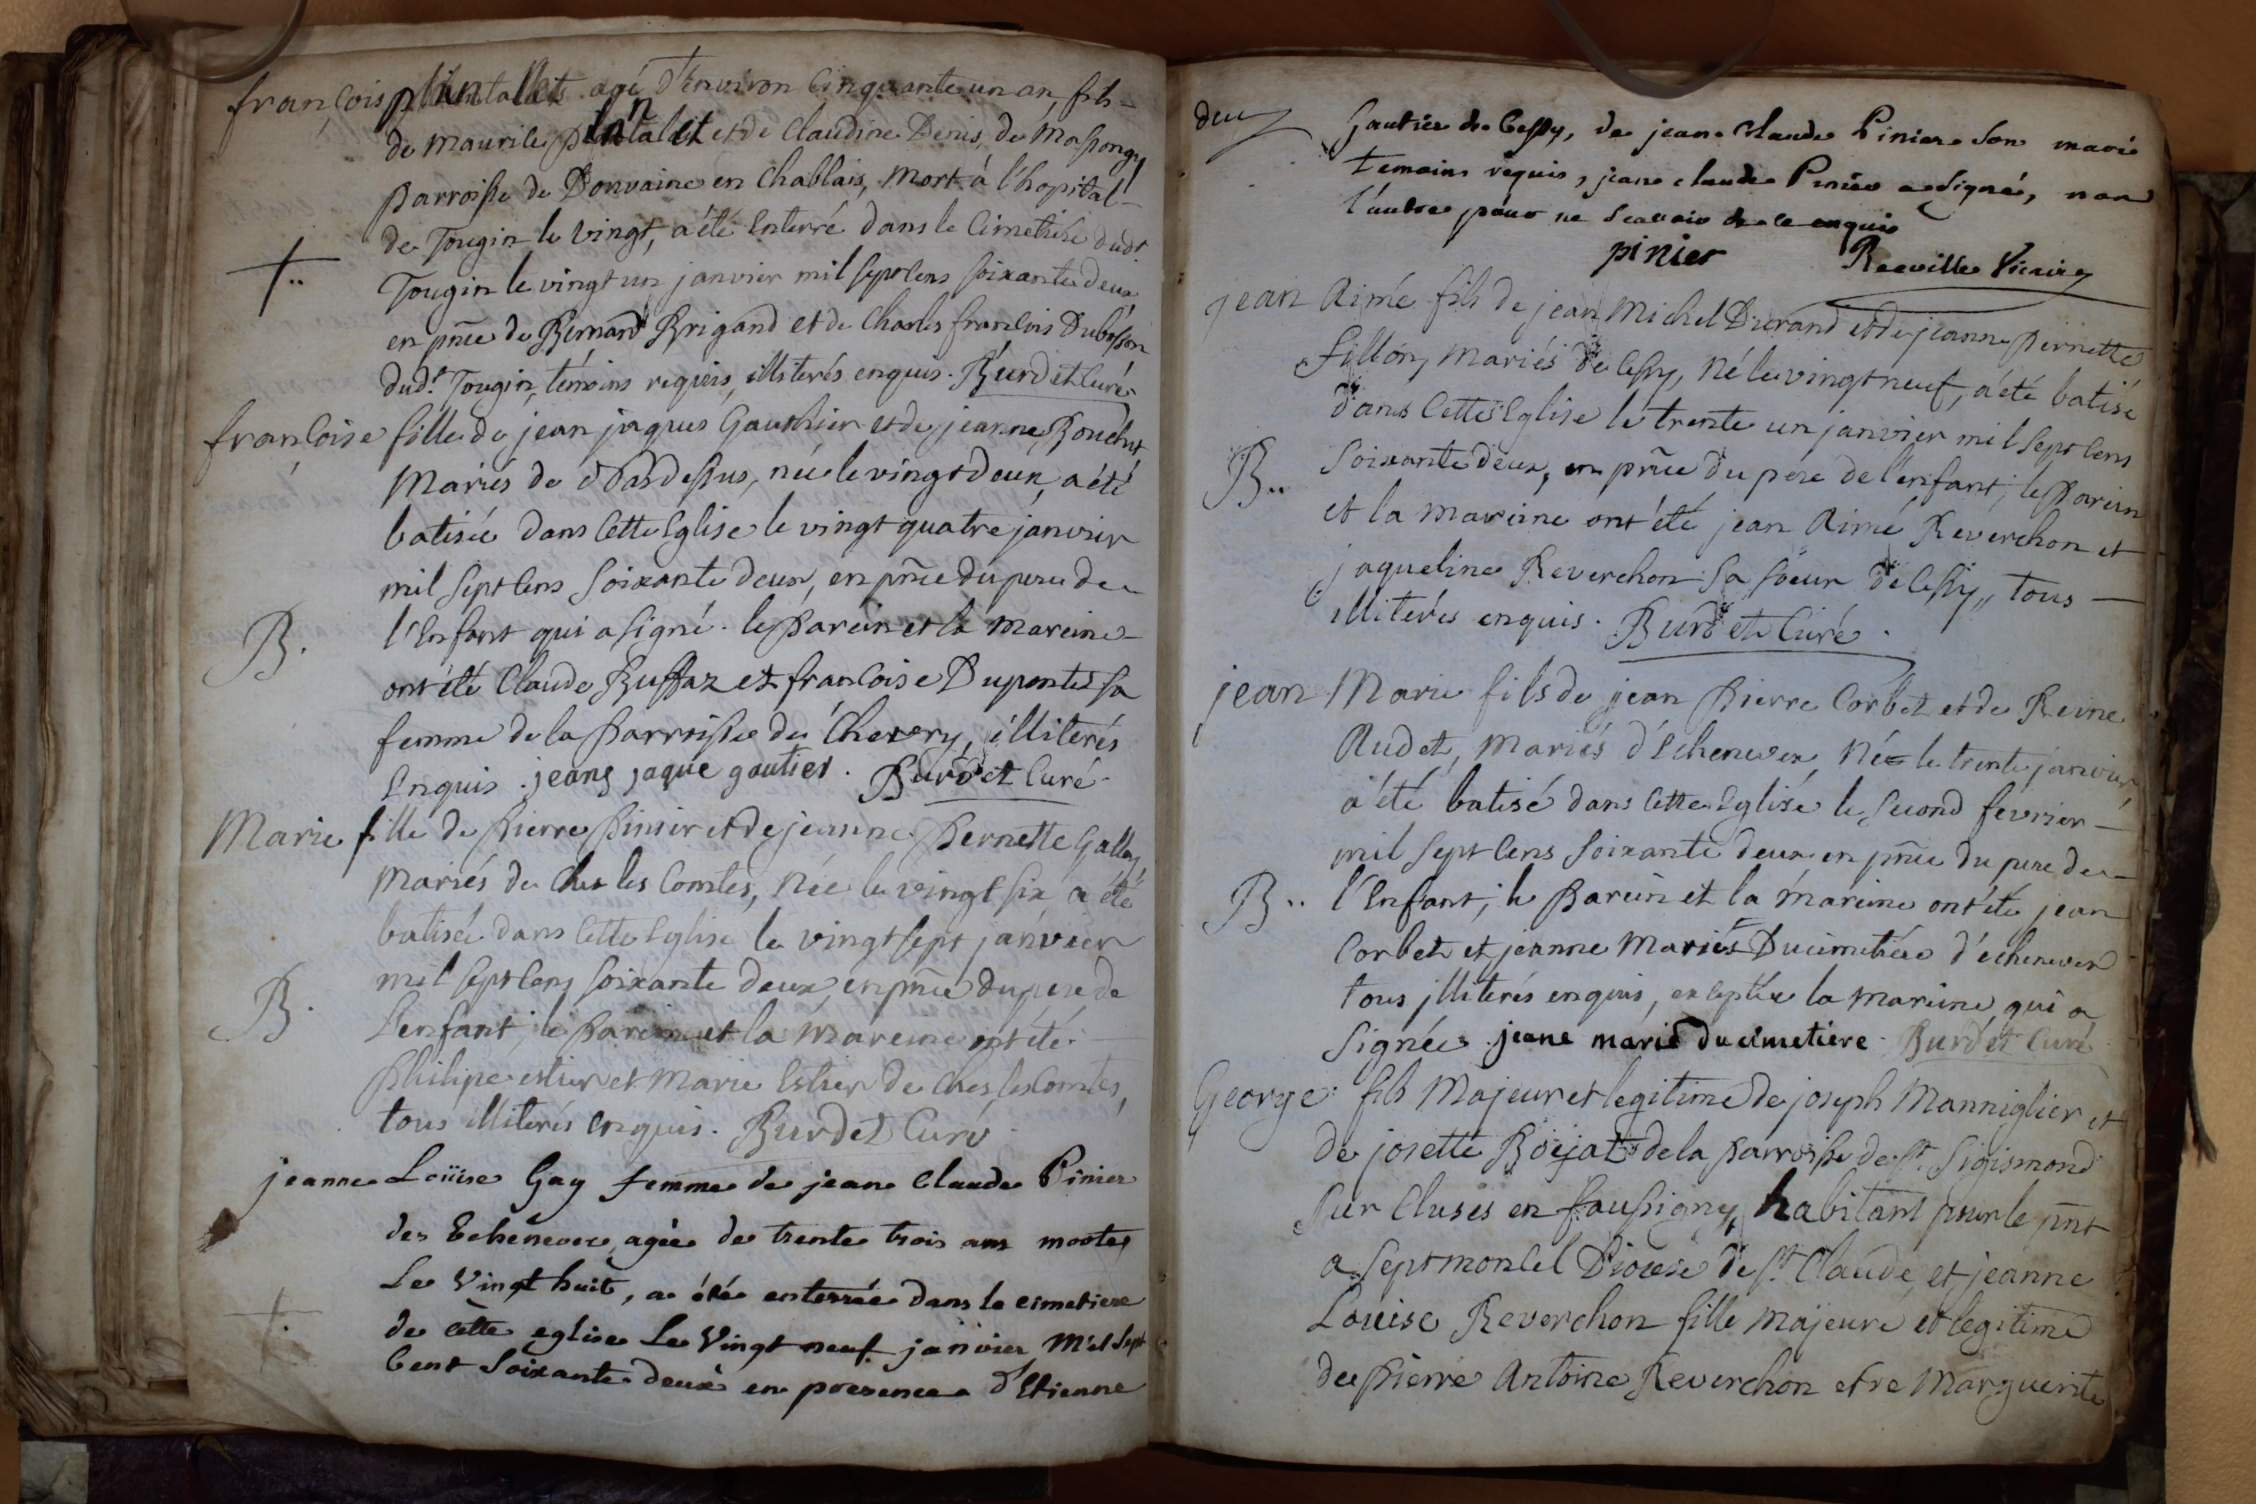 françois plantallet agé d'environ Cinquante un an, fils
de maurile plantalet et de Claudine Denis, de Massongy
parroisse de Donvaine en Chablais, mort à l'hopital
de Tougin le vingt, a été Enterré dans le Cimetière dudt
+..
Tougin le vingt un janvier mil sept Cens soixante deux
en pñce de Bernard Brigand et de Charles franCois Dubosson
dud.t Tougin, témoins requis, illiterés enquis. Burdet Curé
franCoise fille de jean jaques Gauthier et de jeanne Bouchut
Mariés de Dardessus, née le vingt deux, a été
batisée dans Cette Eglise le vingt quatre janvier
mil sept Cens soixante deux, en pñce du pere de
B.
l'Enfant qui a signé. le pareîn et la mareine
ont été Claude Buffaz et franCoise Dupontet sa
femme de la parroisse de Chevry, illiterés
Enquis. jeang jaque gautier. Burdet Curé
Marie fille de pierre pinier et de jeanne pernette Gallay
Mariés de Ches les Comtes, Née le vingt six a été
batisée dans Cette Eglise le vingt sept janvier
mil sept Cens soixante deux, en pñce du pere de
B.
L'enfant, le parein et la mareine ont été
philipe estier et Marie Estier de Ches les Comtes,
tous illiterés enquis. Burdet Curé
jeanne Loüise Gay femme de jean Claude Pinier
des Echénevex, agée de trente trois ans morte
Le Vingt huit, a été enterrée dans le cimetiere
+.
de cètte eglise Le Vingt neuf janvier Mil Sept
Cent Soixante deux en presence d'Etienne
Gautier de Cessy, de jean Claude Pinier son mari
temoins requis, jean claude Pinier a signé, non
l'autre pour ne scavoir de ce enquis
pinier Reeville Vicaire
jean Aimé fils de jean Michel Durand et de jeanne pernette
fillon, Mariés de Cessy, Né le vingt neuf, a été batisé
dans Cette Eglise le trente un janvier mil sept Cens
B..
Soixante deux, en pñce du pere de l'enfant; le parein
et la mareine ont été jean Aimé Reverchon et
jaqueline Reverchon sa soeur de Cessy,, tous
illiterés enquis. Burdet Curé.
jean Marie fils de jean pierre Corbet et de Reine
Audet, mariés d'Echenevex, Né le trente janvier,
a été batisé dans Cette Eglise le second fevrier
mil sept Cens soixante deux en pñce du pere de
B..
l'Enfant; le parein et la mareine ont été jean
Corbet et jeanne Marie Ducimetière d'échenevex
tous illiterés enquis, exceptée la mareine, qui a
signée. jeane marie ducimetiere. Burdet Curé
George fils Majeur et legitime de joseph Manniglier et
de josette Boëjat de la parroisse de St. Sigismond
sur Cluses en faussigny, habitant pour le pñt
a Septmoncel Diocese de St. Claude, et jeanne
Louise Reverchon fille majeure et legitime
de pierre Antoine Reverchon et de Marguerite